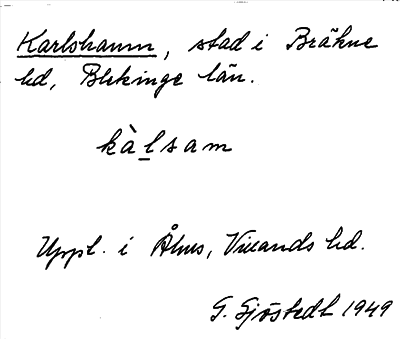 Karlshamn, stad i Bräkne
hd, Blekinge län.
kàl̲sam
Uppl. i Åhus, Villands hd.
G. Sjöstedt 1949